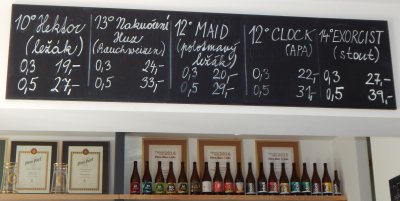 10° Hektor
(ležák)
0,3 19,-
0,5 27,-
13° Nakouření
Huz
(Rauchweizen)
0,3 24,-
0,5 33,-
12° MAID
(polotmavý
ležák)
0,3 20,-
0,5 29,-
12° CLOCK
(APA)
0,3 22,-
0,5 31,-
14° EXORCIST
(stout)
0,3 27,-
0,5 39,-